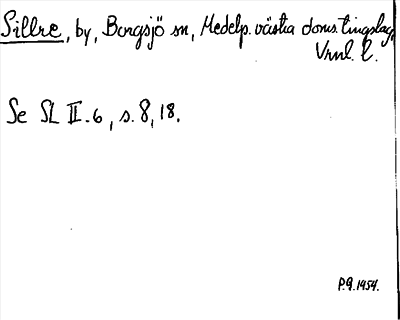 Sillre, by, Borgsjö sn, Medelp. västra doms. tingslag,
Vrnl. l.
Se SL II.6, s. 8, 18.
P.9.1954.